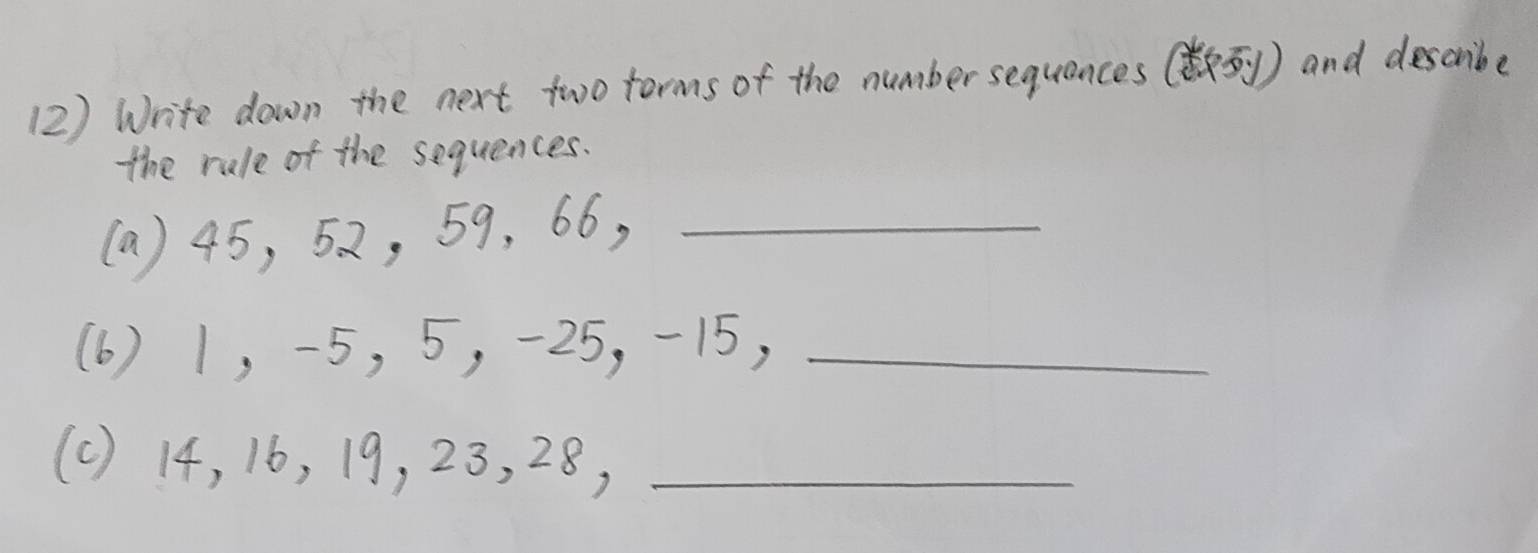 12) Write down the next two terms of the number sequences (数列) and describe
the rule of the sequences.
(a) 45, 52, 59, 66, __________
(b) 1, -5, 5, -25, -15, __________
(c) 14, 16, 19, 23, 28, __________